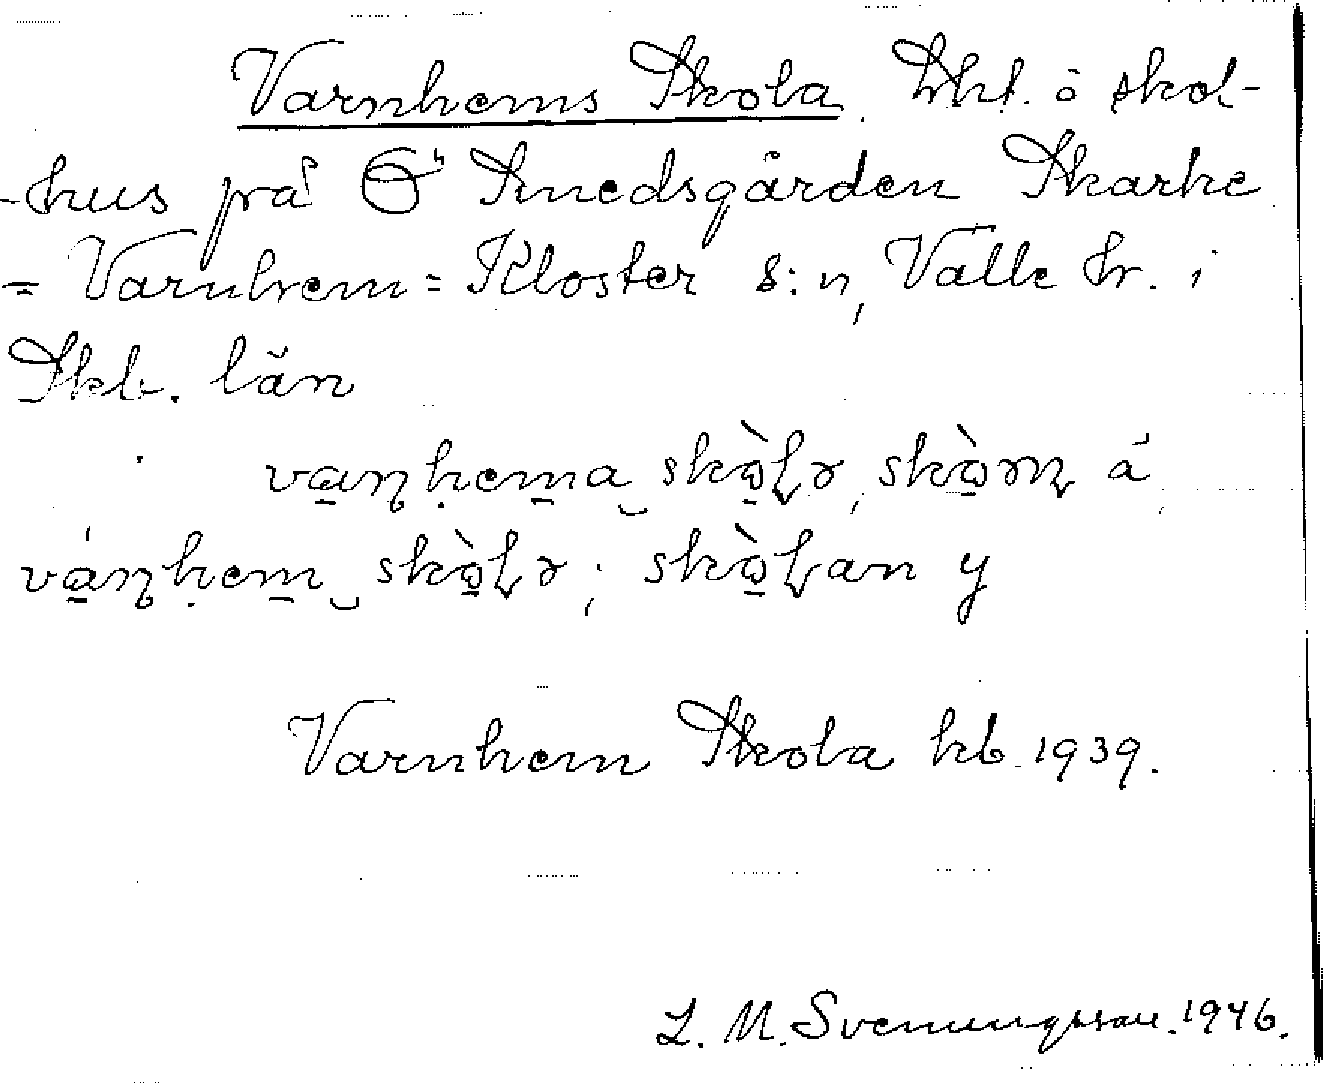 Varnhems Skola. Lht. o skol-
-hus på Ö Smedsgården Skarke
= Varnhem = Kloster s:n, Valle hr. i
Skb. län
va̱ɳḥem̱a‿skò̱ɽə, skò̱əɳ å
vá̱ɳḥem̱‿skò̱ɽə; skò̱ɽan y
Varnhem Skola kb. 1939.
L. M. Svenungsson. 1946.